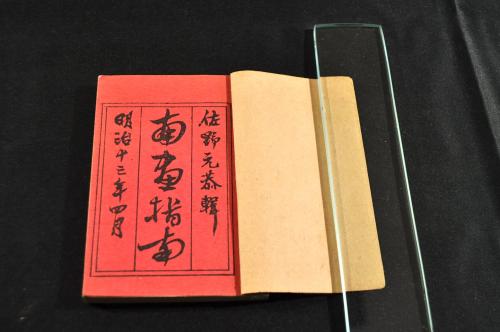 佐野元恭輯
南畫指南
明治十三年四月